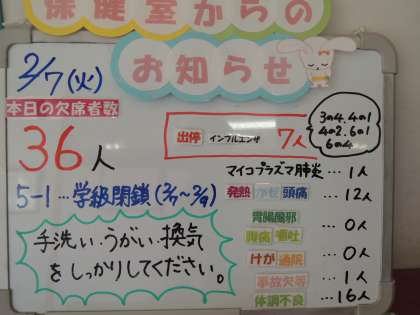 保健室からの
お知らせ
2/7(火)
本日の欠席者数
36人
出停 インフルエンザ 7人
3の4.4の1
4の2.6の1
6の4
マイコプラズマ肺炎…1人
5-1…学級閉鎖(2/7~2/9)
発熱 かぜ 頭痛 …12人
胃腸風邪
腹痛 嘔吐 …0人
けが 通院 …0人
事故欠等 …1人
体調不良 …16人
手洗い.うがい.換気
をしっかりしてください。